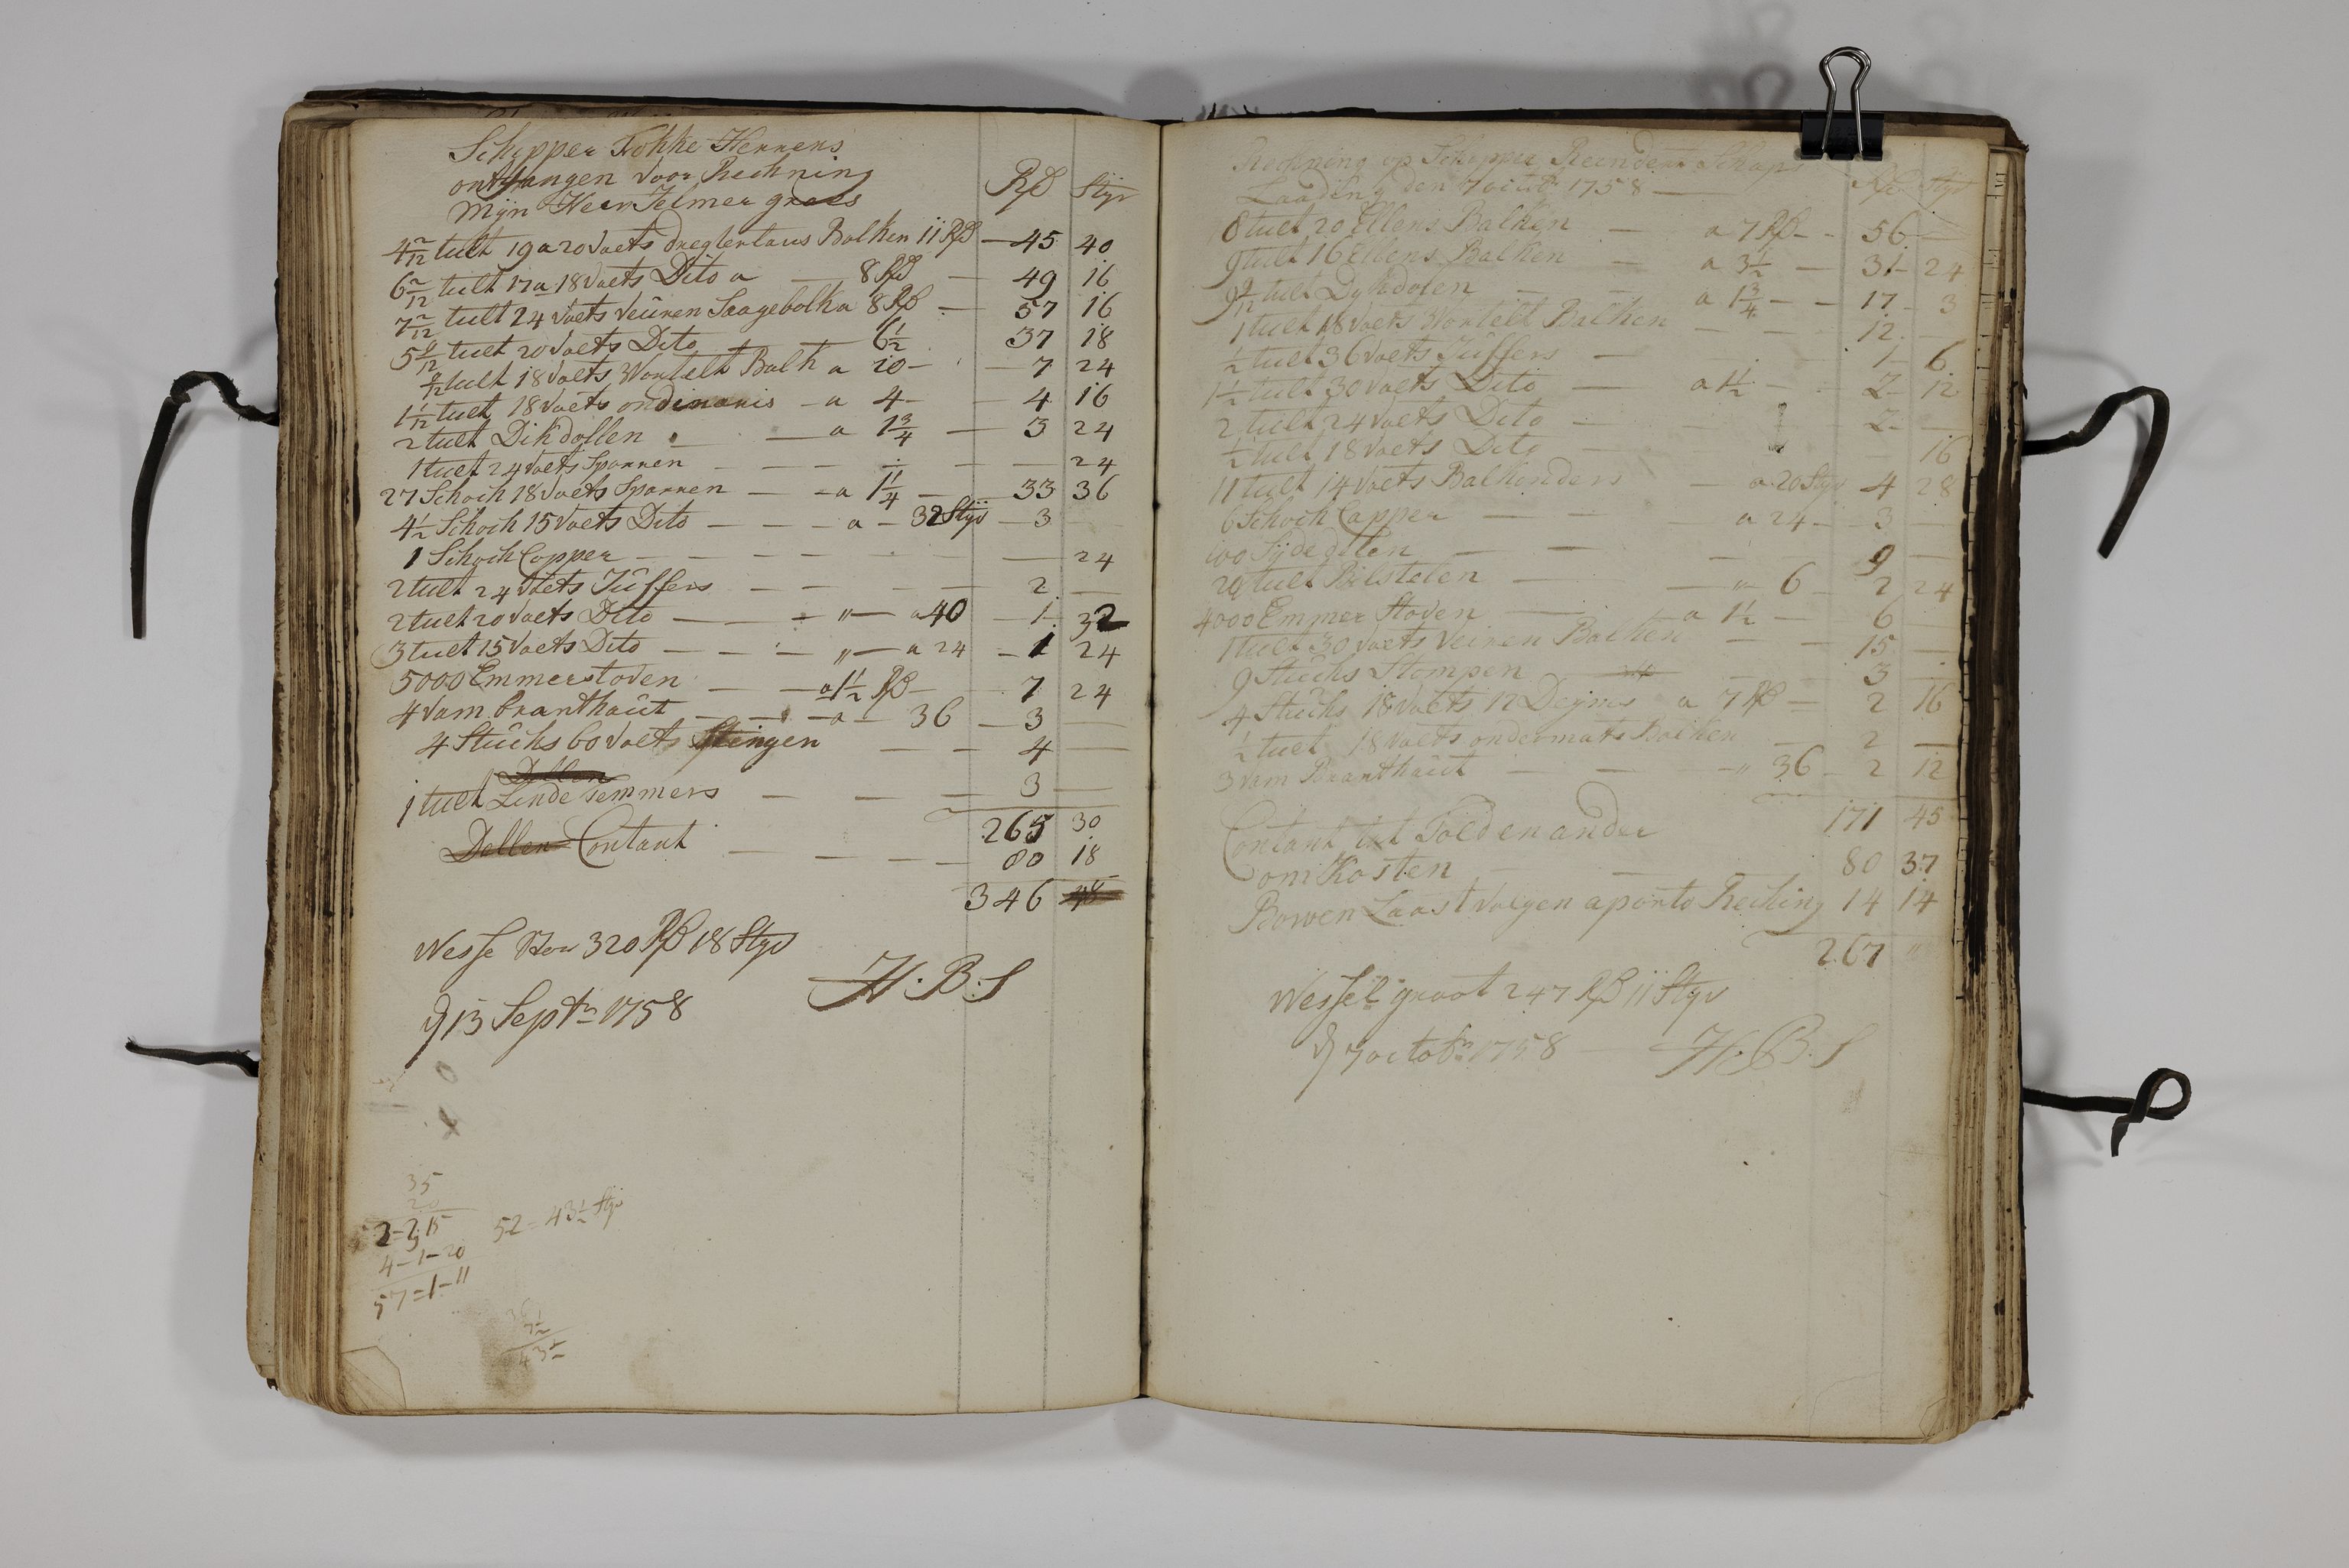 Schipper Fokke Herrens
ontfangen Voor Rechning
Mijn Heer Jelmer grees
4 2/12 tult 19 a 20 Voets Balken 11 Rd — 45 40
6 2/12 tult 17 a 18 Voets Dito a — 8 Rd — 49 16
7 2/12 tult 24 Voets Veüren Saagebolk a 8 Rd — 57 16
5 9/12 tult 20 Voets Dito — 6 1/2 37 18
9/12 tult 18 Voets Wortelt Balk a 10 — 7 24
1 1/12 tult 18 Voets ordinaris — a 4 — 4 16
2 tult Dikdollen — a 1 3/4 — 3 24
1 tult 24 Voets Sparren — — — 24
27 Schoch 18 Voets Sparren — a 1 1/4 — 33 36
4 1/2 Schoch 15 Voets Dito — — — a — 32 Styv — 3
1 Schoch Copper — — — — 24
2 tult 24 Voets Jüffers — — — 2 —
2 tult 20 Voets Dito — — — " — a 40 — 1 — 32
3 tult 15 Voets Dito — — — " — a 24 — 1 24
5000 Emmerstoven — — a 1 1/2 Rd — 7 24
4 Vam branthaüt — — — a — 36 — 3 —
4 Stücks 60 Voets Stengen — — 4 —
Dollen
1 tult Linde Temmers — — — 3 —
265 30
Dollen Contant — — — — 80 18
346 48
Wesse 320 Rd 18 Styv
d 13 Septr 1758 H. B. S
35
2-2 15
4-1-20
57=1-11
52 = 43 1/2 Styv
7 1/2
43 1/2
Rd Styv
Rechning op Schipper Reinder Schaps
Laading den 7 octob 1758 —
Rd Styv
8 tult 20 Ellens Balken — a 7 Rd — 56 —
9 tult 16 Ellens Balken — a 3 1/2 — 31 24
9 9/12 tult Dykdolen — — a 1 3/4 — — 17 3
1 tult 18 Voets Wortelt Balken — — 12 —
1/2 tult 36 Voets Jüffers — 1 6
1 1/2 tult 30 Voets Dito — a 1 1/2 — 2 12
2 tult 24 Voets Dito — 2 —
1/2 tult 18 Voets Dito — 16
11 tult 14 Voets Balkenders — a 20 Styv 4 28
6 Schoch Capper — — a 24 — 3 —
100 Sijde delen — — — 9 —
20 tult Bilstelen — — " 6 — 2 24
4000 Emmer Stoven — a 1 1/2 — 6
1 tult 30 Voets Veüren Balken — — 15 —
9 Stücks Stompen — 3 —
4 Stücks 18 Voets 12 Deyms a 7 Rd — 2 16
1/2 tult 18 Voets ondermats Balken — 2 —
3 Vam Branthaüt — — — " 36 — 2 12
171 45
Contant tot Told en ander
onkosten — — 80 37
Bowen Laast Volgen aparto Rechning 14 14
267 "
Wessel groot 247 Rd 11 Styv
d 7 octobr 1758 — H. B. S